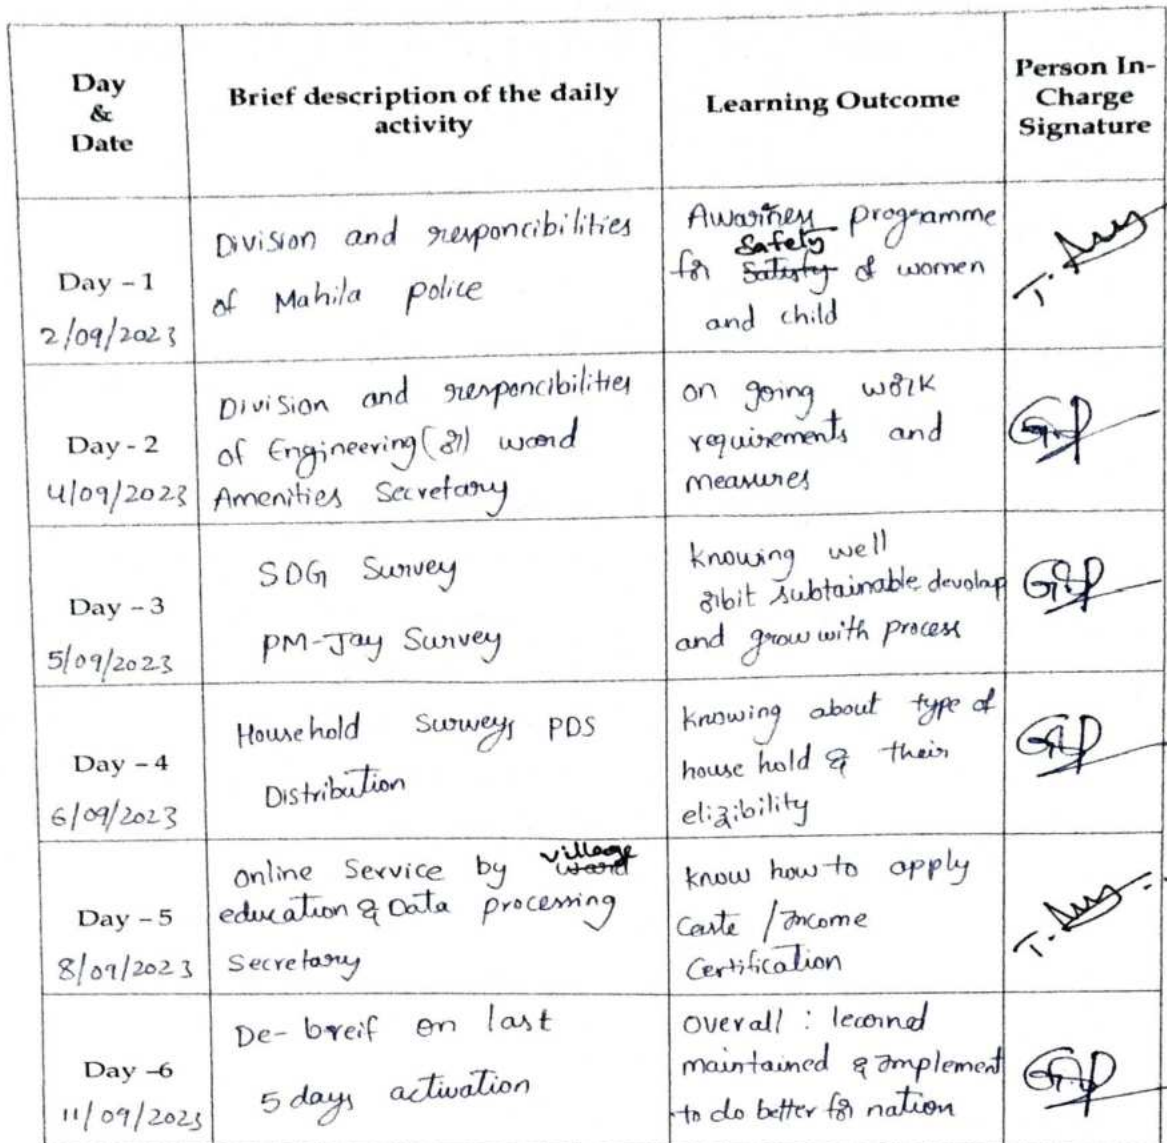 Day
&
Date
Brief description of the daily
activity
Learning Outcome
Person In-
Charge
Signature
Day - 1
2/09/2023
Division and responcibilities
of Mahila police
Awariness programme
Safety
for Satisfy of women
and child
Day - 2
4/09/2023
Division and responcibilities
of Engineering (or) ward
Amenities Secretary
on going work
requirements and
measures
Day - 3
5/09/2023
SDG Survey
PM-Jay Survey
knowing well
orbit subtainable devolap
and grow with process
Day - 4
6/09/2023
Household Surveys PDS
Distribution
Knowing about type of
house hold & their
eligibility
Day - 5
8/09/2023
village
online Service by ward
education & Data processing
Secretary
know how to apply
Caste / Income
Certification
Day -6
11/09/2023
De-breif on last
5 days activation
overall : learned
maintained & Implement
to do better for nation